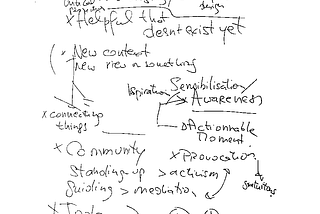 design
× Helpful that
doesn't exist yet
(× New content
New view on something
Inspiration
Sensibilisation
× Awareness
× connecting
things
Actionnable
Moment
× Community
Standing up > activism
Guiding > mediation
× Provocation
× Tools